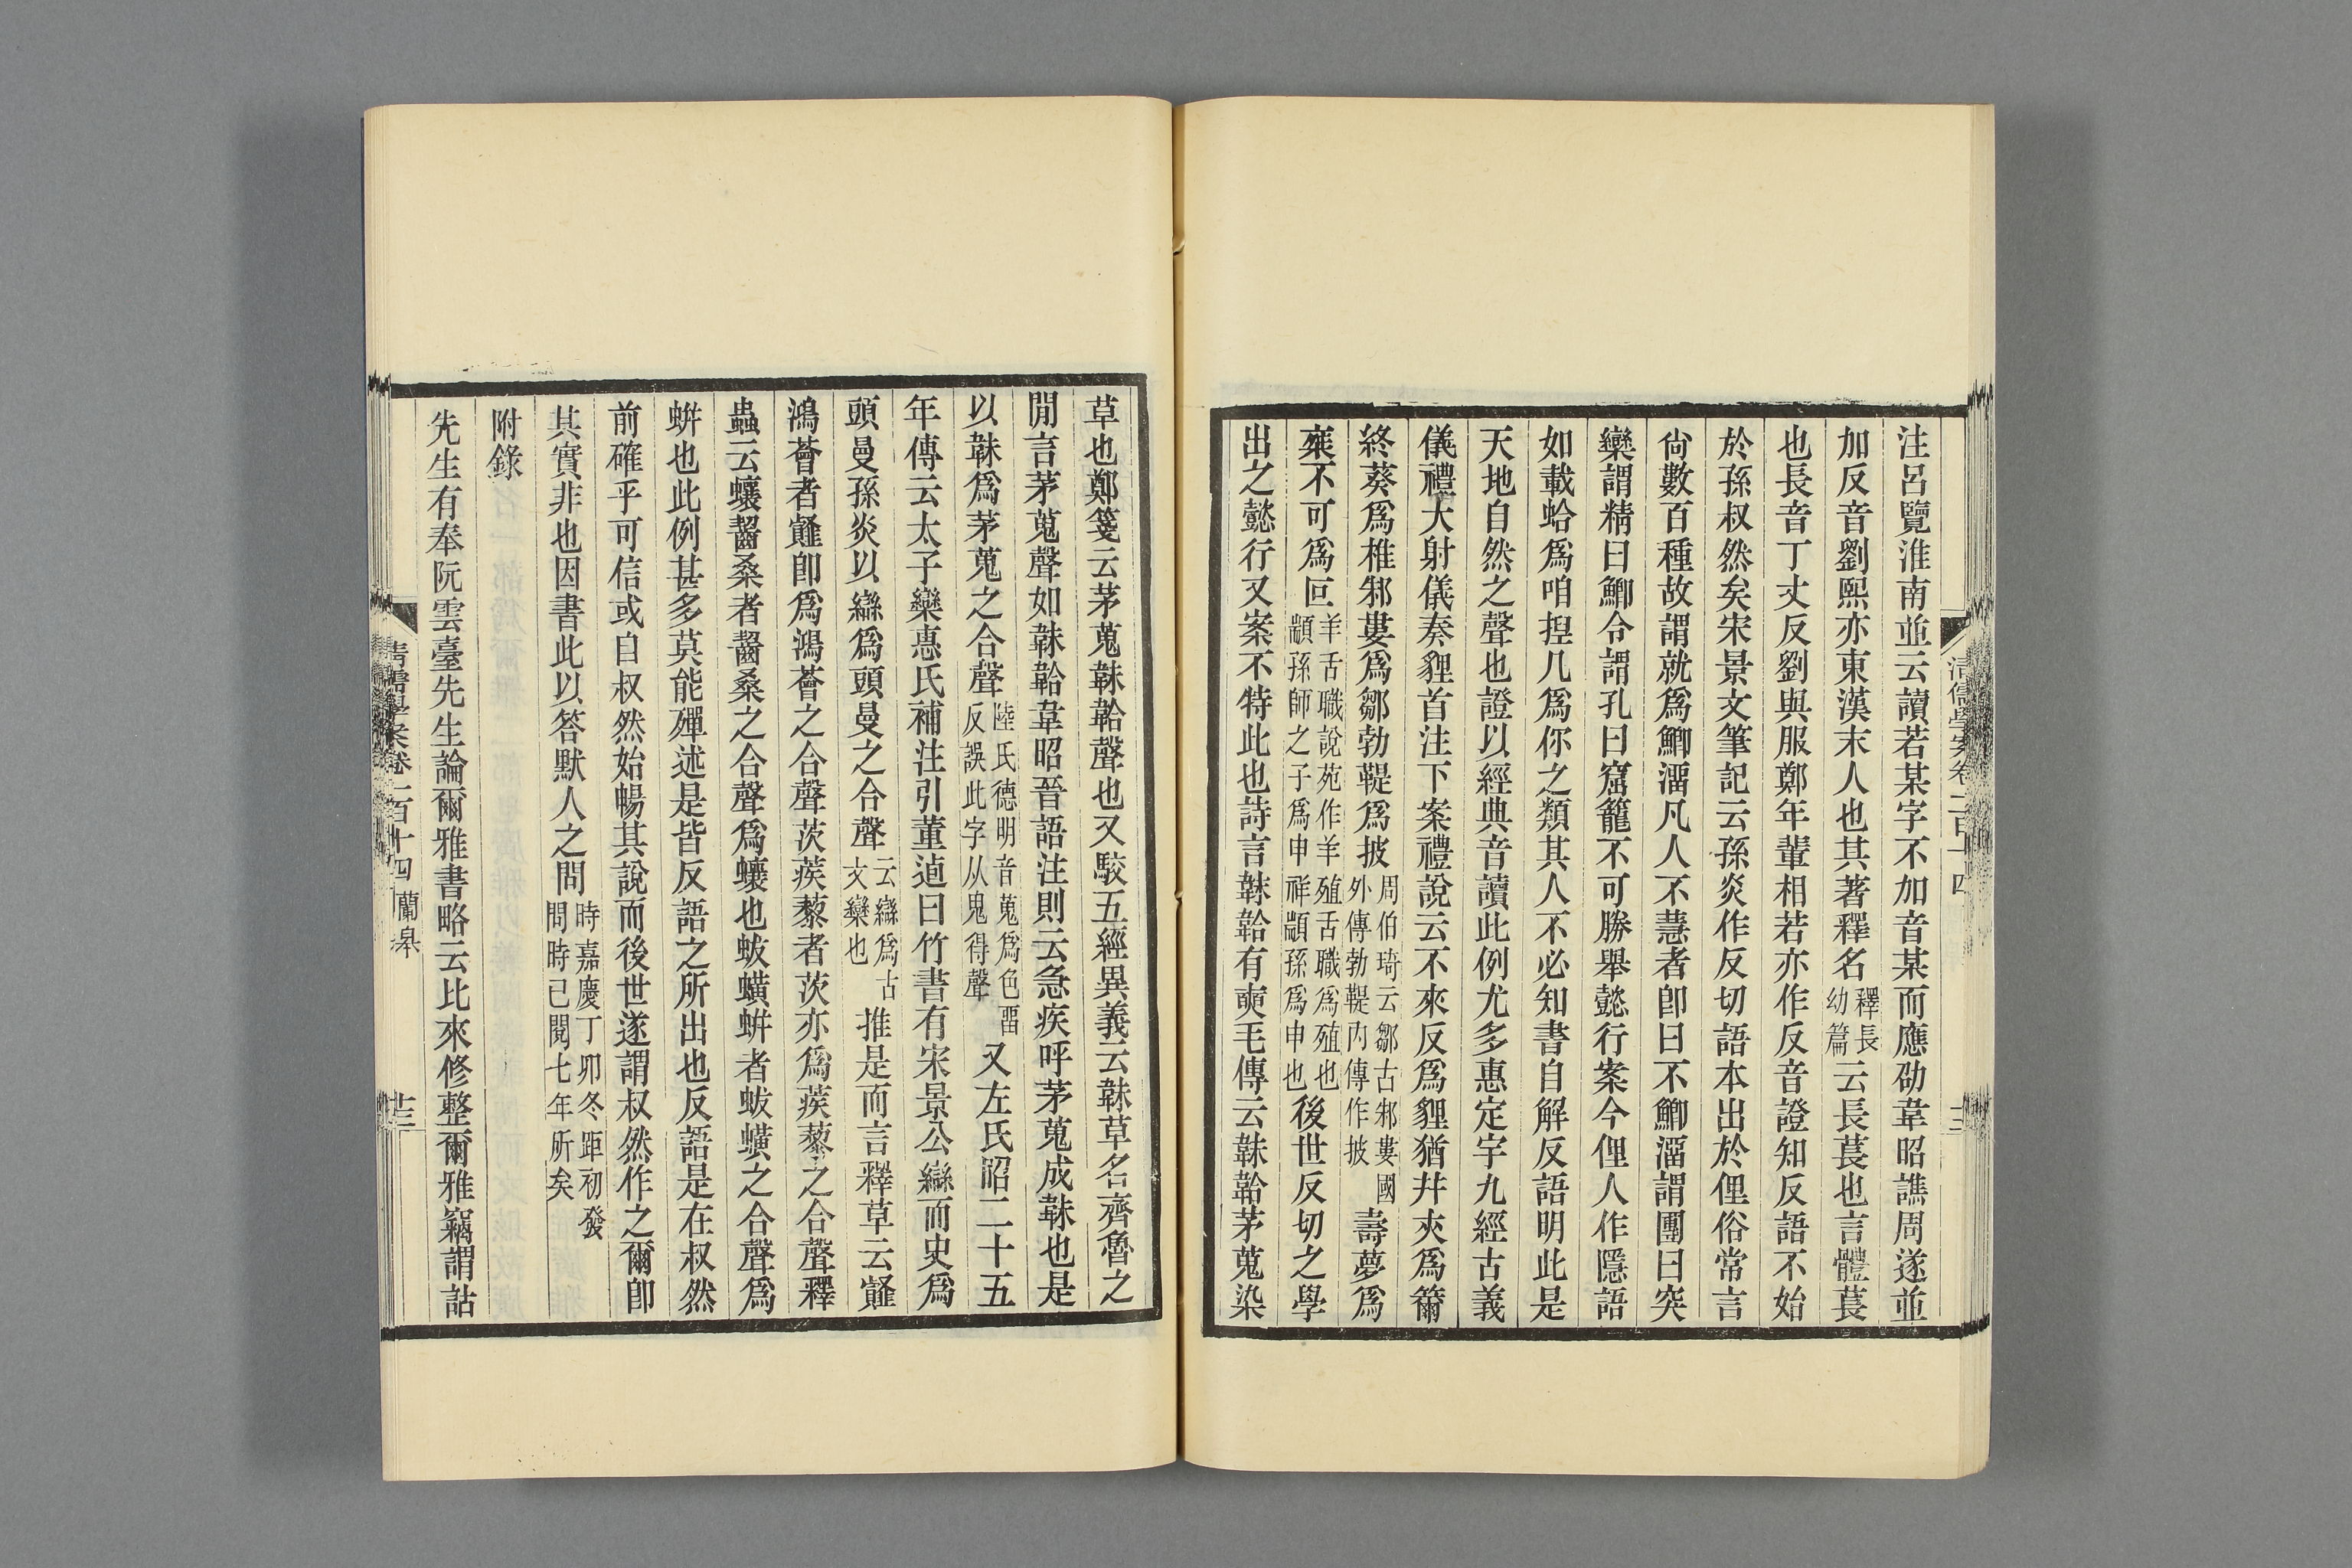 注呂覽淮南並云讀若某字不加音某而應劭韋昭譙周遂並
加反音劉熙亦東漢末人也其著釋名釋長幼篇云長萇也言體萇
也長音丁丈反劉與服鄭年輩相若亦作反音證知反語不始
於孫叔然矣宋景文筆記云孫炎作反切語本出於俚俗常言
尙數百種故謂就爲鯽溜凡人不慧者卽曰不鯽溜謂團曰突
欒謂精曰鯽令謂孔曰窟籠不可勝舉懿行案今俚人作隱語
如載蛤爲咱揑几爲你之類其人不必知書自解反語明此是
天地自然之聲也證以經典音讀此例尤多惠定宇九經古義
儀禮大射儀奏貍首注下案禮說云不來反爲貍猶幷夾爲籋
終葵爲椎邾婁爲鄒勃鞮爲披周伯琦云鄒古邾婁國外傳勃鞮內傳作披壽夢爲
椉不可爲叵羊舌職說苑作羊殖舌職爲殖也顓孫師之子爲申祥顓孫爲申也後世反切之學
出之懿行又案不特此也詩言韎韐有奭毛傳云韎韐茅蒐染
清儒學案卷二百十四
草也鄭箋云茅蒐韎韐聲也又駮五經異義云韎草名齊魯之
閒言茅蒐聲如韎韐韋昭晉語注則云急疾呼茅蒐成韎也是
以韎爲茅蒐之合聲陸氏德明音蒐爲色畱反誤此字从鬼得聲又左氏昭二十五
年傳云太子欒惠氏補注引董逌曰竹書有宋景公䜌而史爲
頭曼孫炎以䜌爲頭曼之合聲云䜌爲古文欒也推是而言釋草云虇
鴻薈者虇卽爲鴻薈之合聲茨蒺藜者茨亦爲蒺藜之合聲釋
蟲云蠰齧桑者齧桑之合聲爲蠰也蛂蟥蛢者蛂蟥之合聲爲
蛢也此例甚多莫能殫述是皆反語之所出也反語是在叔然
前確乎可信或自叔然始暢其說而後世遂謂叔然作之爾卽
其實非也因書此以答默人之問時嘉慶丁卯冬距初發問時已閱七年所矣
附錄
先生有奉阮雲臺先生論爾雅書略云比來修整爾雅竊謂詁
清儒學案卷二百十四 蘭皋 十三